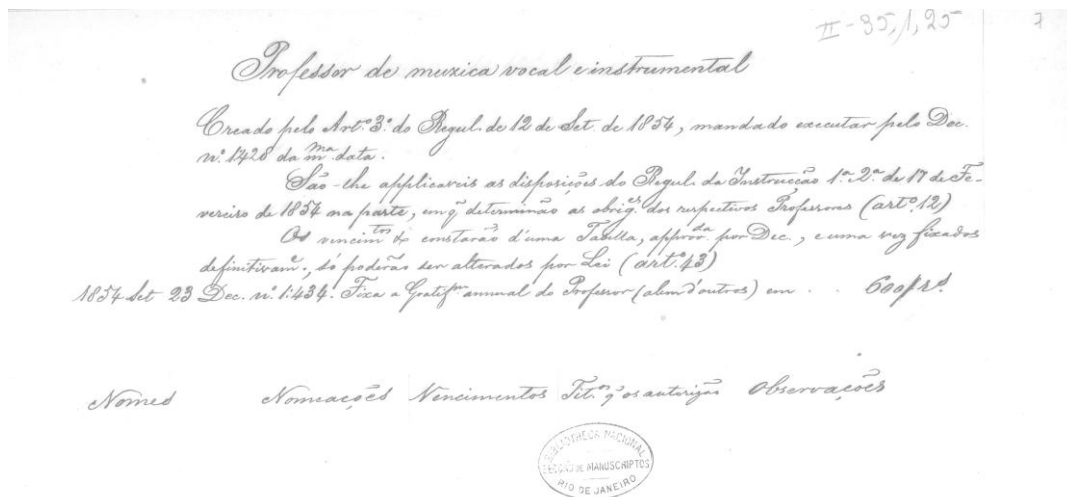 II-35,1,25
7
Professor de muzica vocal e instrumental
Creado pelo Art.º 3.º do Regul. de 12 de Set. de 1854, mandado executar pelo Dec.
n.º 1428 da m.ma data.
São-lhe applicaveis as disposições do Regul. da Instrucção 1.ª e 2.ª de 17 de Fe-
vereiro de 1854 na parte, em q̃ determinão as obrig.es dos respectivos Professores (art.º 12)
Os vencim.tos &c constarão d'uma Tabella, approv.da por Dec., e uma vez fixados
definitivam.e, só poderão ser alterados por Lei (art.º 43)
1854 Set 23 Dec. n.º 1:434. Fixa a Gratif.am annual do Professor (alem d'outros) em . . 600$rs.
Nomes Nomeações Vencimentos Tit.os q̃ os autorizão Observações
BIBLIOTHECA NACIONAL
SECÇÃO DE MANUSCRIPTOS
RIO DE JANEIRO